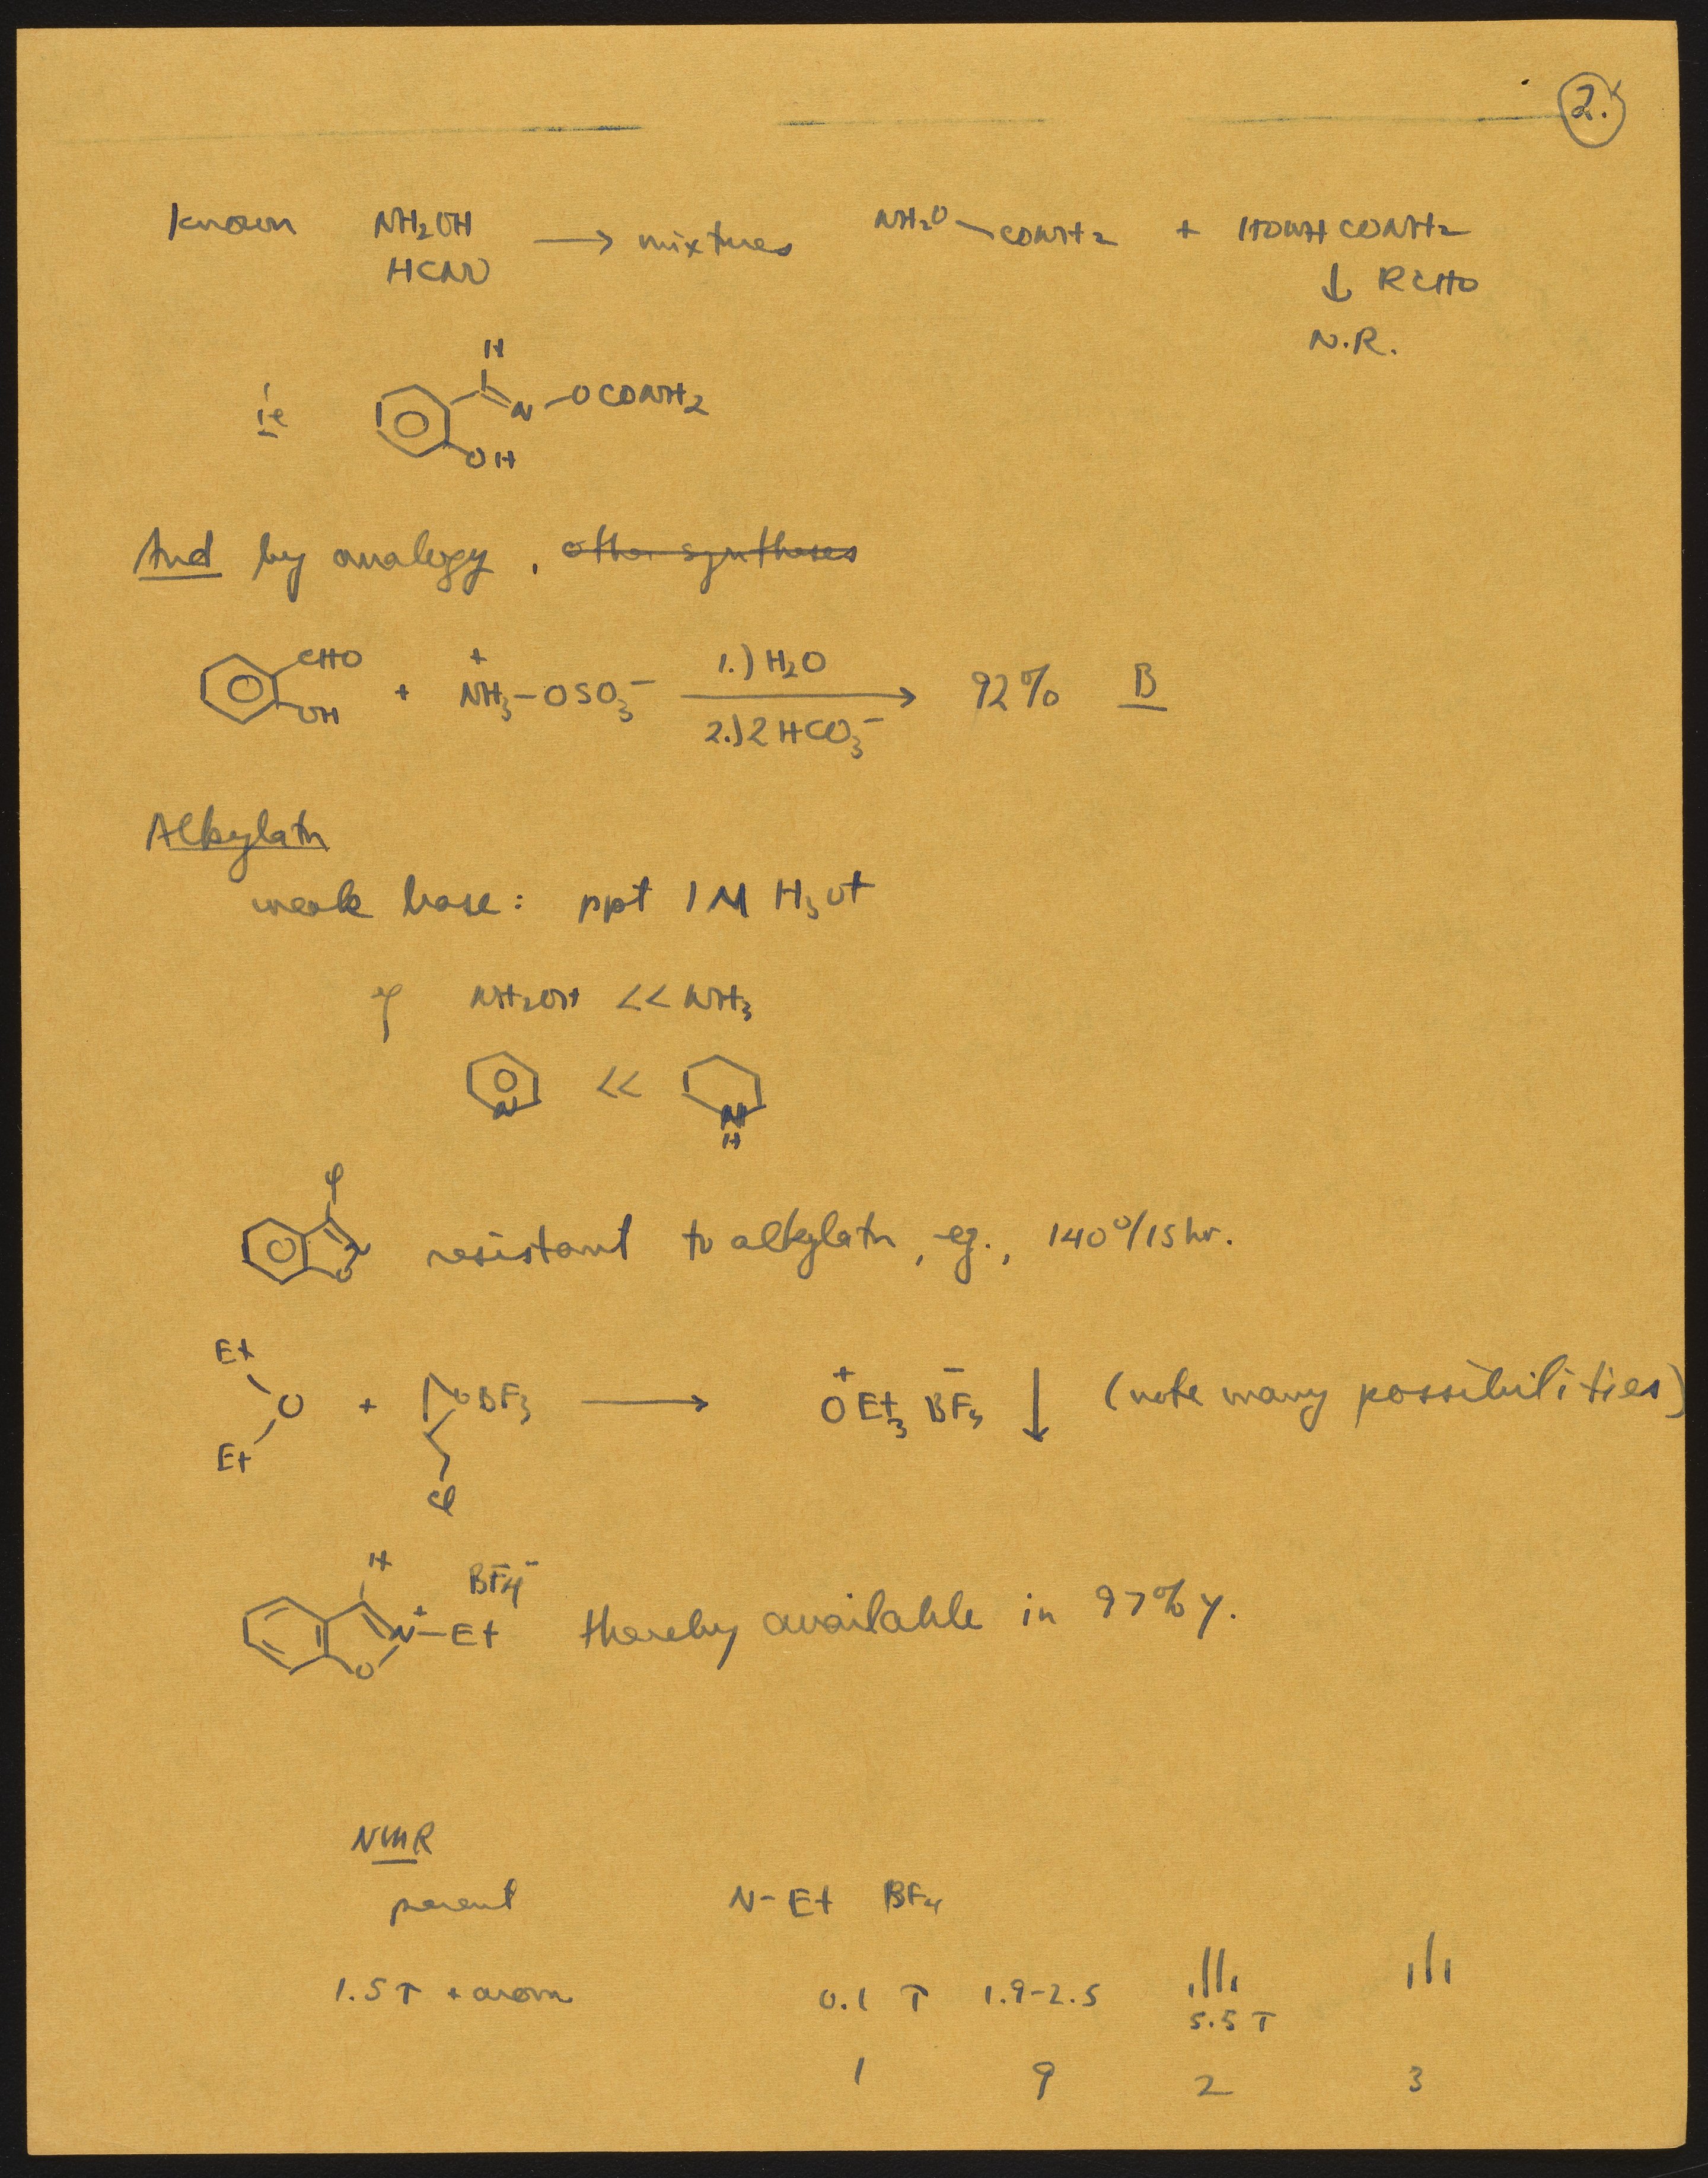 2.
Known NH2OH HCNO → mixtures NH2O-CONH2 + HONHCONH2
↓ RCHO
N.R.
ie H N -OCONH2
OH
And by analogy , other syntheses
CHO OH + +NH3-OSO3- 1.) H2O 2.) 2 HCO3- → 92% B
Alkylatn
weak base: ppt 1 M H3O+
NH2OH << NH3
N << N H
φ N O resistant to alkylatn, eg., 140°/15 hr.
Et Et O + OBF3 Cl → +OEt3 BF4- ↓ (note many possibilities)
H N+-Et O BF4- thereby available in 97% y.
NMR
parent N-Et BF4
1.5 T + arom 0.1 T 1.9-2.5 5.5 T
1 9 2 3